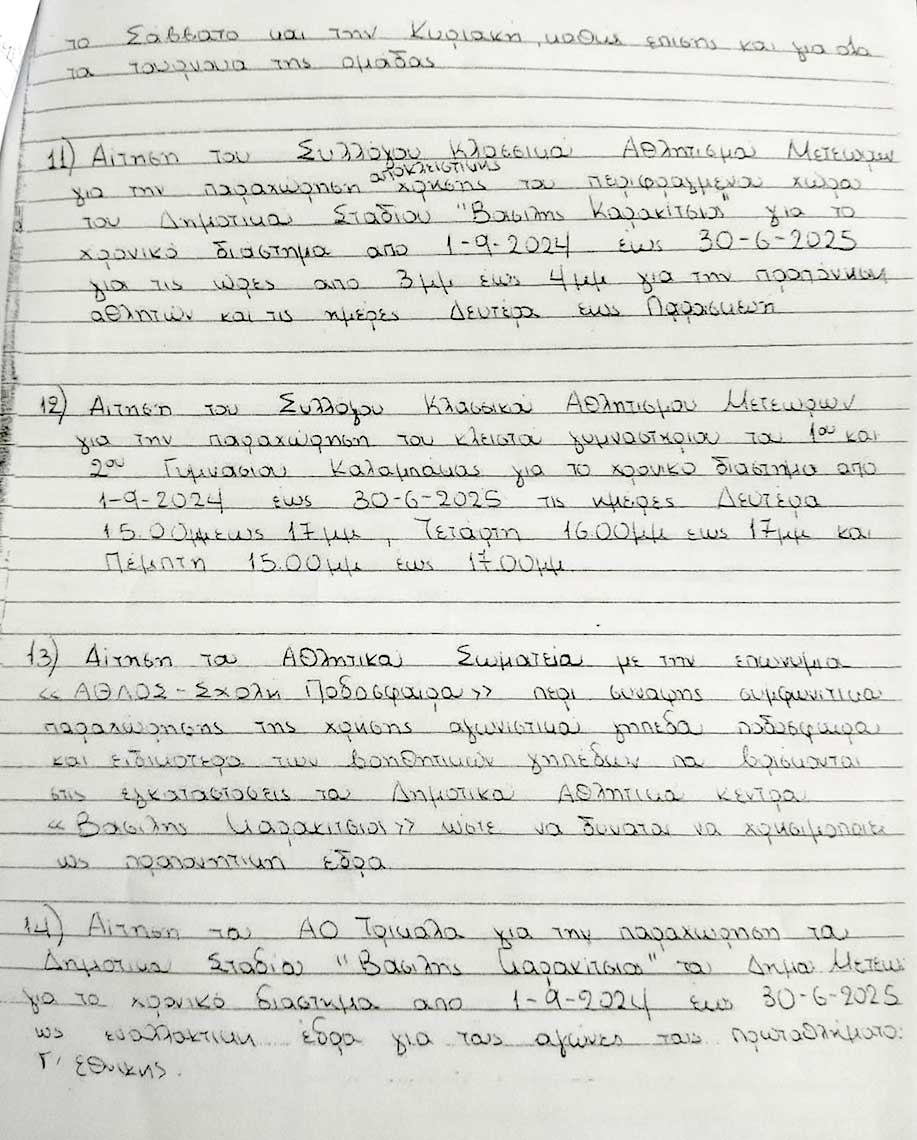 το Σάββατο και την Κυριακή, καθώς επίσης και για όλα
τα τουρνουα της ομάδας
11) Αίτηση του Συλλόγου Κλασσικού Αθλητισμού Μετεώρων
για την παραχώρηση αποκλειστικης χρήσης του περιφραγμένου χώρου
του Δημοτικού Σταδίου "Βασίλης Καρακίτσιος" για το
χρονικό διάστημα από 1-9-2024 έως 30-6-2025
για τις ώρες από 3μμ έως 4μμ για την προπόνηση
αθλητών και τις ημέρες Δευτέρα εως Παρασκευή
12) Αιτηση του Συλλόγου Κλασσικού Αθλητισμου Μετεωρων
για την παραχώρηση του κλειστού γυμναστηριου του 1ου και
2ου Γυμνασιου Καλαμπάκας για το χρονικό διάστημα απο
1-9-2024 έως 30-6-2025 τις ημερες Δευτέρα
15.00μμ εως 17μμ, Τετάρτη 16.00μμ εως 17μμ και
Πέμπτη 15.00μμ έως 17.00μμ
13) Αίτηση του Αθλητικού Σωματείου με την επωνυμια
«ΑΘΛΟΣ-Σχολή Ποδοσφαιρου» περι συναψης συμφωνιτικου
παραχώρησης της χρήσης αγωνιστικού γηπέδου ποδοσφαιρου
και ειδικοτερα των βοηθητικών γηπέδων που βρίσκονται
στις εγκαταστάσεις του Δημοτικού Αθλητικού κεντρου
«Βασίλης Καρακίτσιος» ώστε να δυναται να χρησιμοποιει
ως προπονητικη έδρα
14) Αίτηση του ΑΟ Τρίκαλα για την παραχώρηση του
Δημοτικού Σταδίου "Βασίλης Καρακίτσιος" του Δήμου
για το χρονικό διαστημα απο 1-9-2024 εως 30-6-2025
ως εναλλακτικη έδρα για τους αγώνες του πρωταθλήματο
Γ' Εθνικης.